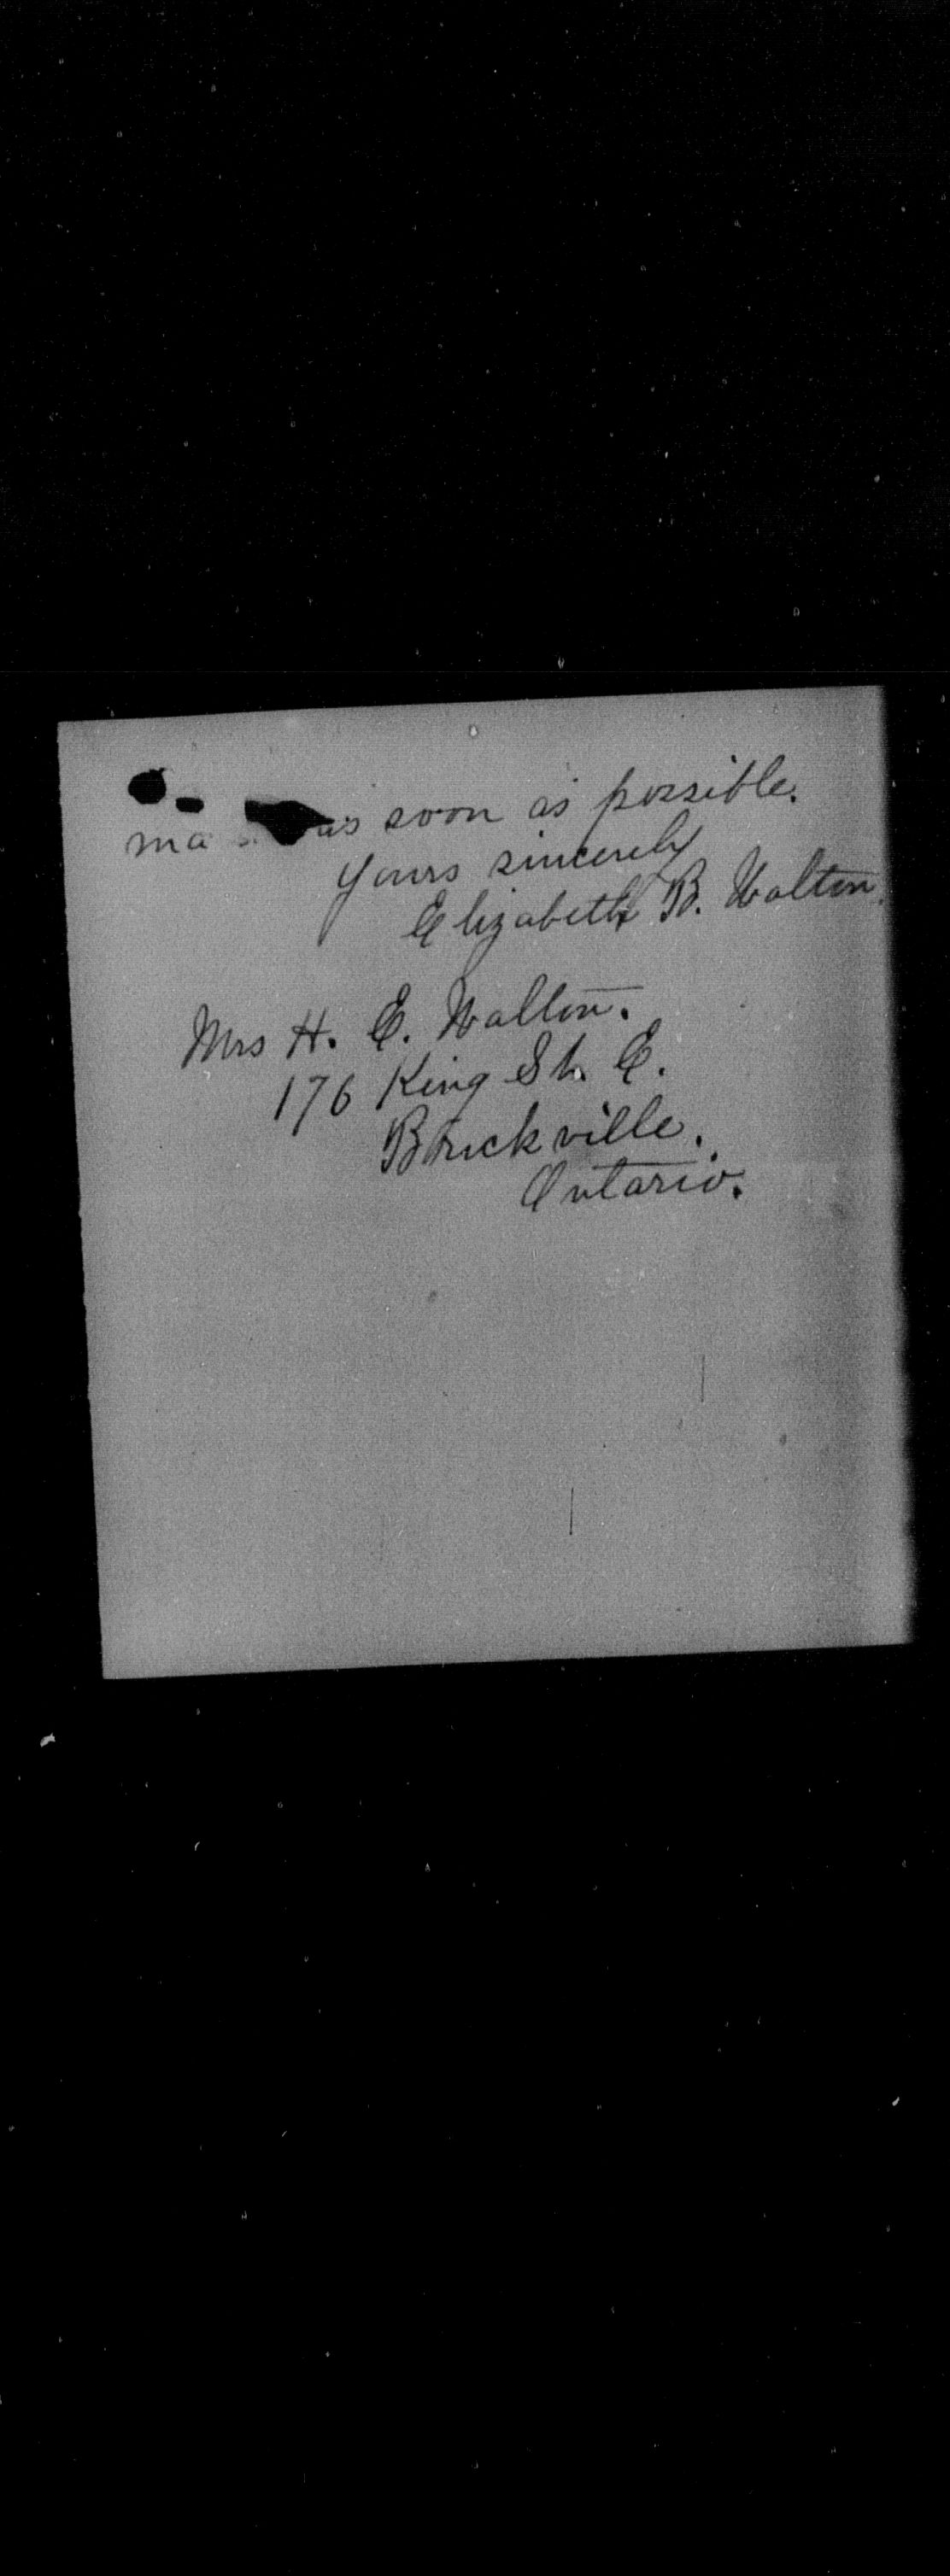 as soon as possible.
Yours sincerely
Elizabeth B. Walton.
Mrs H. E. Walton.
176 King St. E.
Brockville.
Ontario.